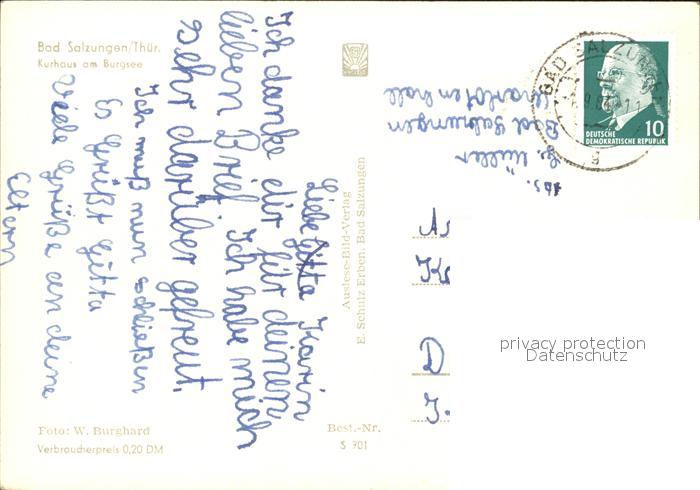 Bad Salzungen/Thür.
Kurhaus am Burgsee
Liebe Karin
Ich danke dir für deinen
lieben Brief. Ich habe mich
sehr darüber gefreut.
Ich muß nun schließen
Es Grüßt Gitta
Viele Grüße an deine
Eltern
Foto: W. Burghard
Verbraucherpreis 0,20 DM
Auslese-Bild-Verlag
E. Schulz Erben, Bad Salzungen
Best.-Nr.
S 701
Abs.
G. Müller
Bad Salzungen
BAD SALZUN
DEUTSCHE
DEMOKRATISCHE REPUBLIK
10
D
privacy protection
Datenschutz